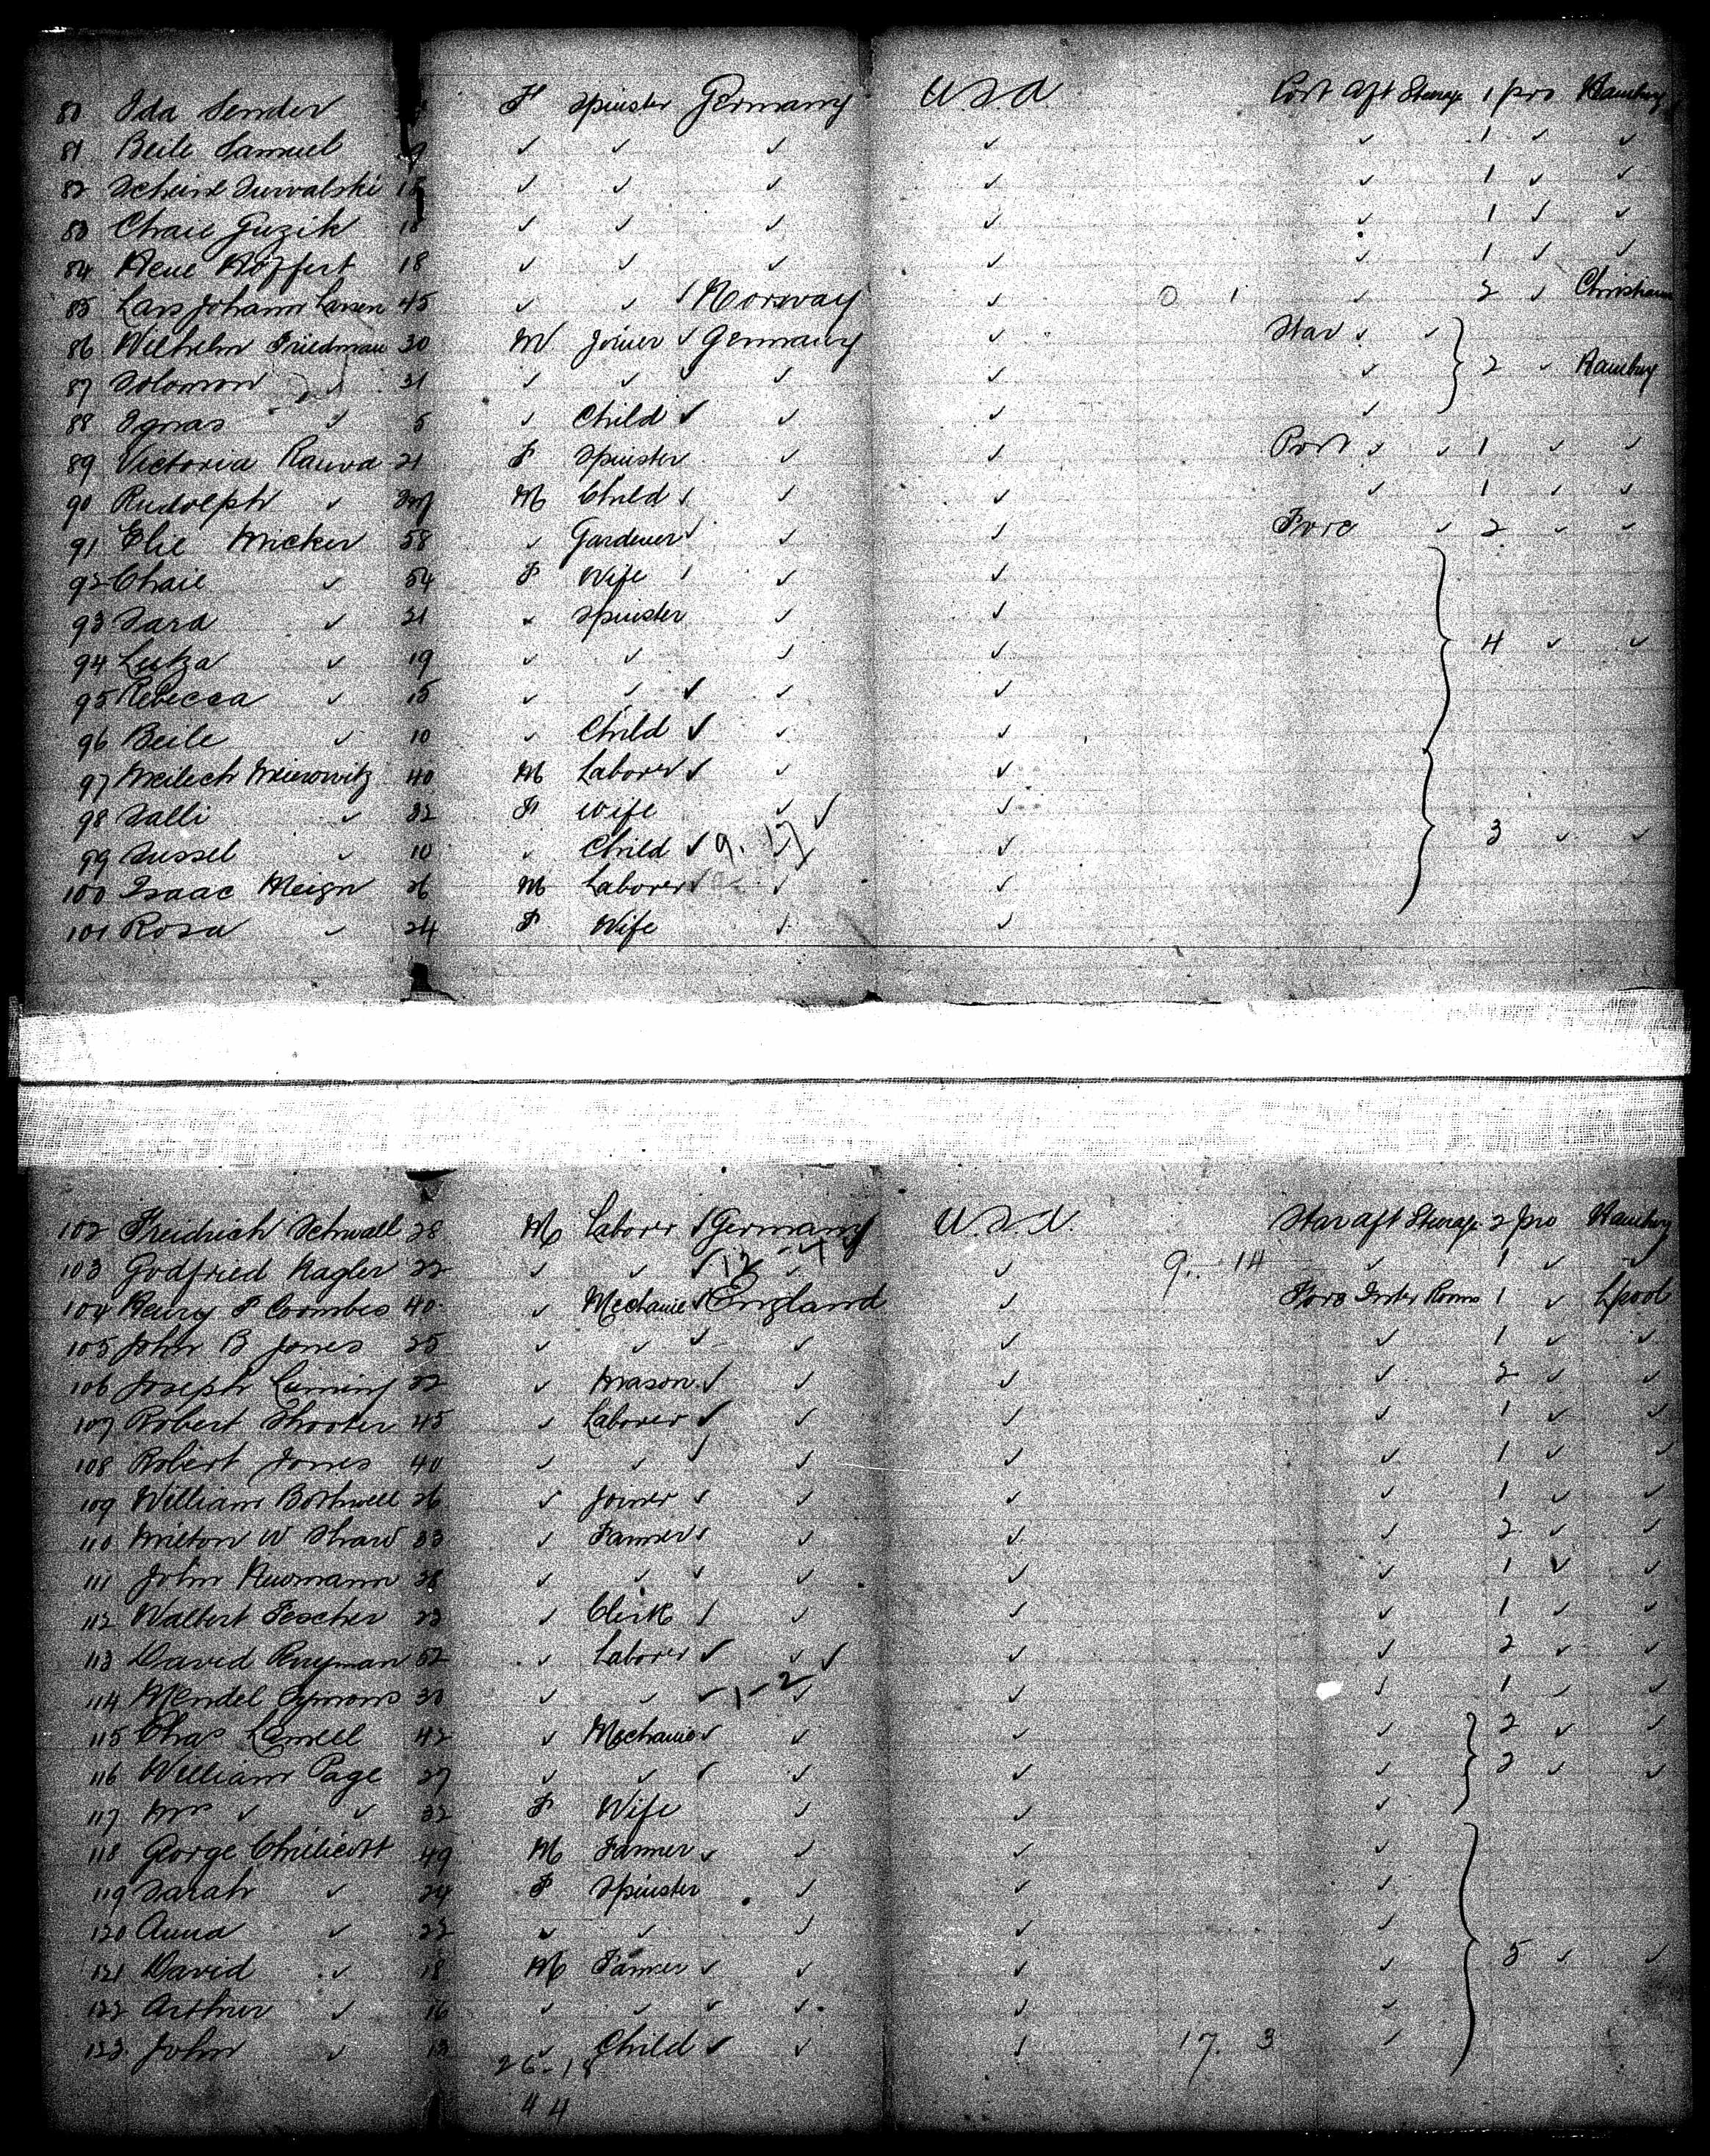 80 Ida Sender F Spinster Germany U S A Port Aft Steerage 1 pro Hamburg
81 Beile Samuel 9 ✓ ✓ ✓ ✓ ✓ 1 ✓ ✓
82 Scheine Suwalski 18 ✓ ✓ ✓ ✓ ✓ 1 ✓ ✓
83 Chaie Guzik 18 ✓ ✓ ✓ ✓ ✓ 1 ✓ ✓
84 18 ✓ ✓ ✓ ✓ ✓ 1 ✓ ✓
85 Lars Johann Larsen 45 ✓ ✓ ✓ Norway ✓ 0 1 ✓ 2 ✓
86 Wilhelm Friedman 30 M Joiner ✓ Germany ✓ Star ✓ ✓
87 Solomon ✓ 21 ✓ ✓ ✓ ✓ ✓ ✓ 2 ✓ Hamburg
88 Ignas ✓ 5 ✓ Child ✓ ✓ ✓ ✓
89 Victoria 21 F Spinster ✓ ✓ Port ✓ ✓ 1 ✓ ✓
90 Rudolph ✓ M Child ✓ ✓ ✓ ✓ 1 ✓ ✓
91 Elie Micker 58 ✓ Gardener ✓ ✓ ✓ Fore ✓ 2 ✓ ✓
92 Chaie ✓ 54 F Wife ✓ ✓ ✓
93 Sara ✓ 21 ✓ Spinster ✓ ✓
94 Lutza ✓ 19 ✓ ✓ ✓ ✓ 4 ✓ ✓
95 Rebecca ✓ 15 ✓ ✓ ✓ ✓ ✓
96 Beile ✓ 10 ✓ Child ✓ ✓ ✓
97 Meilech Meierowitz 40 M Laborer ✓ ✓ ✓
98 Salli ✓ 32 F Wife ✓ ✓ ✓
99 Sussel ✓ 10 ✓ Child ✓ 9. 17 ✓ 3 ✓ ✓
100 Isaac Meign 26 M Laborer ✓ ✓ ✓
101 Rosa ✓ 24 F Wife ✓ ✓
102 Freidrich Schwall 28 M Laborer ✓ Germany U.S.A. Star Aft Steerage 2 pro Hamburg
103 Godfried Nagler 22 ✓ ✓ ✓ 12 - 1 ✓ ✓ 9. 14 ✓ 1 ✓ ✓
104 Henry F Coombes 40 ✓ Mechanic ✓ England ✓ Fore Inter Rooms 1 ✓ Lpool
105 John B Jones 25 ✓ ✓ ✓ ✓ ✓ ✓ 1 ✓ ✓
106 Joseph Leming 22 ✓ Mason ✓ ✓ ✓ ✓ 2 ✓ ✓
107 Robert Shooter 45 ✓ Laborer ✓ ✓ ✓ ✓ 1 ✓ ✓
108 Robert Jones 40 ✓ ✓ ✓ ✓ ✓ ✓ 1 ✓ ✓
109 William Bothwell 26 ✓ Joiner ✓ ✓ ✓ ✓ 1 ✓ ✓
110 Milton W Shaw 33 ✓ Farmer ✓ ✓ ✓ ✓ 2 ✓ ✓
111 John Newmann 28 ✓ ✓ ✓ ✓ ✓ ✓ 1 ✓ ✓
112 Walbert Fescher 23 ✓ Clerk ✓ ✓ ✓ ✓ 1 ✓ ✓
113 David 52 ✓ Laborer ✓ ✓ ✓ ✓ ✓ 2 ✓ ✓
114 Mendel Symons 30 ✓ ✓ ✓ 1-2 ✓ ✓ ✓ 1 ✓ ✓
115 Chas Lewell 42 ✓ Mechanic ✓ ✓ ✓ ✓ 2 ✓ ✓
116 William Page 27 ✓ ✓ ✓ ✓ ✓ ✓ 2 ✓ ✓
117 Mrs ✓ ✓ 32 F Wife ✓ ✓ ✓
118 George Chilicott 49 M Farmer ✓ ✓ ✓ ✓
119 Sarah ✓ 24 F Spinster ✓ ✓ ✓
120 Anna ✓ 22 ✓ ✓ ✓ ✓ ✓
121 David ✓ 18 M Farmer ✓ ✓ ✓ ✓ 5 ✓ ✓
122 Arthur ✓ 16 ✓ ✓ ✓ ✓ ✓ ✓
123 John ✓ 13 ✓ Child ✓ ✓ ✓ 17. 3 ✓
26-18
44